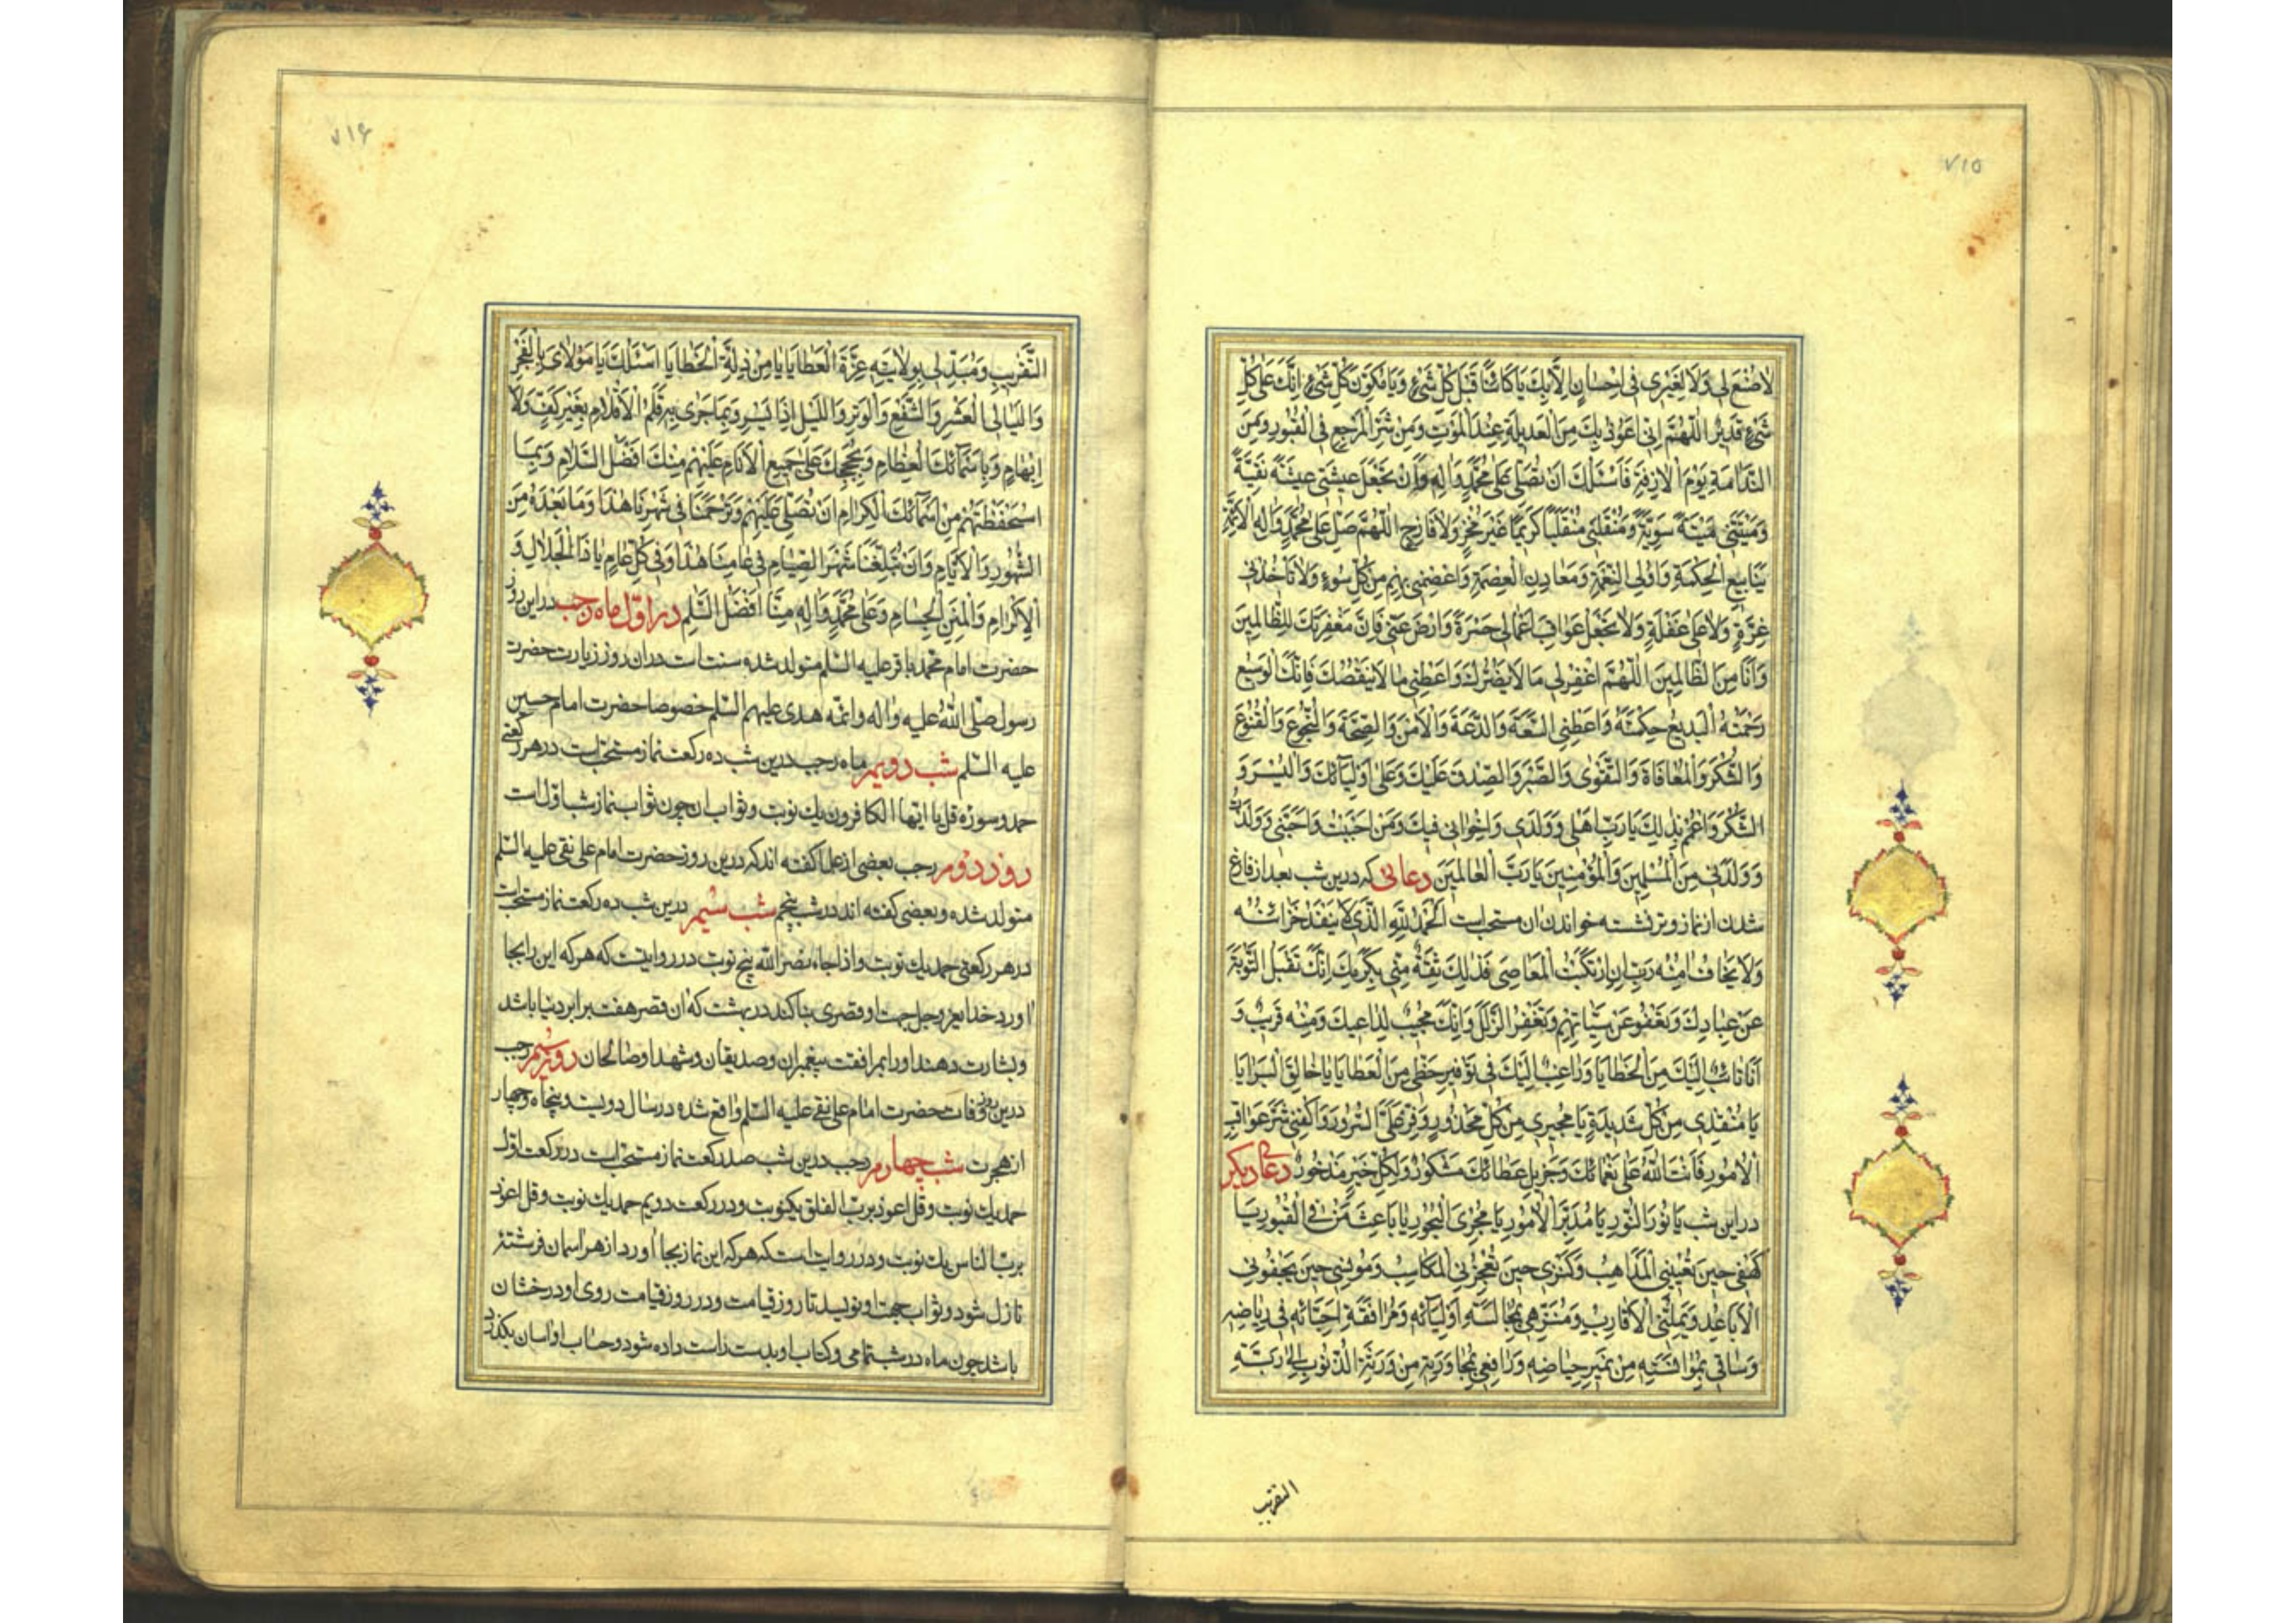 ٧١٥
لا صُنْعَ لِي وَلا لِغَيْرِي فِي اِحْسانٍ اِلّا بِكَ يا كائِنًا قَبْلَ كُلِّ شَيْءٍ وَيا مُكَوِّنَ كُلِّ شَيْءٍ اِنَّكَ عَلى كُلِّ
شَيْءٍ قَدِيرٌ اَللّٰهُمَّ اِنّي اَعُوذُ بِكَ مِنَ الْعَدِيلَةِ عِنْدَ الْمَوْتِ وَمِنْ شَرِّ الْمَرْجِعِ فِي الْقُبُورِ وَمِنَ
النَّدامَةِ يَوْمَ الْازِفَةِ فَاَسْئَلُكَ اَنْ تُصَلِّيَ عَلى مُحَمَّدٍ وَالِهِ وَاَنْ تَجْعَلَ عِيشَتِي عِيشَةً نَقِيَّةً
وَمِيتَتِي مِيتَةً سَوِيَّةً وَمُنْقَلَبِي مُنْقَلَبًا كَرِيمًا غَيْرَ مُخْزٍ وَلا فاضِحٍ اَللّٰهُمَّ صَلِّ عَلى مُحَمَّدٍ وَالِهِ الْاَئِمَّةِ
يَنابِيعِ الْحِكْمَةِ وَاُولِي النِّعْمَةِ وَمَعادِنِ الْعِصْمَةِ وَاعْصِمْنِي بِهِمْ مِنْ كُلِّ سُوءٍ وَلا تَأْخُذْنِي
عَلى غِرَّةٍ وَلا عَلى غَفْلَةٍ وَلا تَجْعَلْ عَواقِبَ اَعْمالِي حَسْرَةً وَارْضَ عَنِّي فَاِنَّ مَغْفِرَتَكَ لِلظّالِمِينَ
وَاَنَا مِنَ الظّالِمِينَ اَللّٰهُمَّ اغْفِرْ لِي ما لا يَضُرُّكَ وَاَعْطِنِي ما لا يَنْقُصُكَ فَاِنَّكَ الْوَسِيعُ
رَحْمَتُهُ الْبَدِيعُ حِكْمَتُهُ وَاَعْطِنِي السَّعَةَ وَالدَّعَةَ وَالْاَمْنَ وَالصِّحَّةَ وَالنُّجُوعَ وَالْقُنُوعَ
وَالشُّكْرَ وَالْمُعافاةَ وَالتَّقْوٰى وَالصَّبْرَ وَالصِّدْقَ عَلَيْكَ وَعَلى اَوْلِيائِكَ وَالْيُسْرَ وَ
الشُّكْرَ وَاعْمُمْ بِذٰلِكَ يا رَبِّ اَهْلِي وَوَلَدِي وَاِخْوانِي فِيكَ وَمَنْ اَحْبَبْتُ وَاَحَبَّنِي وَوَلَدْتُ
وَوَلَدَنِي مِنَ الْمُسْلِمِينَ وَالْمُؤْمِنِينَ يا رَبَّ الْعالَمِينَ دعائى كه درين شب بعد از فارغ
شدن از نماز وتر نشسته خواندن ان مستحب است اَلْحَمْدُ لِلّٰهِ الَّذِي لا يَنْفَدُ خَزائِنُهُ
وَلا يَخافُ امِنُهُ رَبِّ اِنِ ارْتَكَبْتُ الْمَعاصِيَ فَذٰلِكَ ثِقَةٌ مِنِّي بِكَرَمِكَ اِنَّكَ تَقْبَلُ التَّوْبَةَ
عَنْ عِبادِكَ وَتَعْفُو عَنْ سَيِّئاتِهِمْ وَتَغْفِرُ الزَّلَلَ وَاِنَّكَ مُجِيبٌ لِداعِيكَ وَمِنْهُ قَرِيبٌ وَ
اَنَا تائِبٌ اِلَيْكَ مِنَ الْخَطايا وَراغِبٌ اِلَيْكَ فِي تَوْفِيرِ حَظِّي مِنَ الْعَطايا يا خالِقَ الْبَرايا
يا مُنْقِذِي مِنْ كُلِّ شَدِيدَةٍ يا مُجِيرِي مِنْ كُلِّ مَحْذُورٍ وَفِّرْ عَلَيَّ السُّرُورَ وَاكْفِنِي شَرَّ عَواقِبِ
الْاُمُورِ فَاَنْتَ اللّٰهُ عَلى نَعْمائِكَ وَجَزِيلِ عَطائِكَ مَشْكُورٌ وَلِكُلِّ خَيْرٍ مَذْخُورٌ دعاى ديكر
دراين شب يا نُورَ النُّورِ يا مُدَبِّرَ الْاُمُورِ يا مُجْرِيَ الْبُحُورِ يا باعِثَ مَنْ فِي الْقُبُورِ يا
كَهْفِي حِينَ تُعْيِينِي الْمَذاهِبُ وَكَنْزِي حِينَ تُعْجِزُنِي الْمَكاسِبُ وَمُونِسِي حِينَ يَجْفُونِي
الْاَباعِدُ وَتَمَلُّنِي الْاَقارِبُ وَمُنَزِّهِي بِمُجالَسَةِ اَوْلِيائِهِ وَمُرافَقَةِ اَحِبّائِهِ فِي رِياضِهِ
وَساقِيَّ بِمُؤانَسَتِهِ مِنْ نَمِيرِ حِياضِهِ وَرافِعِي بِمُجاوَرَتِهِ مِنْ وَرْطَةِ الذُّنُوبِ اِلى رَبْوَةِ
التقريب
٧١۶
التَّقْرِيبِ وَمُبَدِّلِي بِوِلايَتِهِ عِزَّةَ الْعَطايا مِنْ ذِلَّةِ الْخَطايا اَسْئَلُكَ يا مَوْلايَ بِالْفَجْرِ
وَاللَّيالِي الْعَشْرِ وَالشَّفْعِ وَالْوَتْرِ وَاللَّيْلِ اِذا يَسْرِ وَبِما جَرى بِهِ قَلَمُ الْاَقْلامِ بِغَيْرِ كَفٍّ وَلا
اِبْهامٍ وَبِاَسْمائِكَ الْعِظامِ وَبِحُجَجِكَ عَلى جَمِيعِ الْاَنامِ عَلَيْهِمْ مِنْكَ اَفْضَلُ السَّلامِ وَبِمَا
اسْتَحْفَظْتَهُمْ مِنْ اَسْمائِكَ الْكِرامِ اَنْ تُصَلِّيَ عَلَيْهِمْ وَتَرْحَمَنا فِي شَهْرِنا هٰذا وَما بَعْدَهُ مِنَ
الشُّهُورِ وَالْاَيّامِ وَاَنْ تُبَلِّغَنا شَهْرَ الصِّيامِ فِي عامِنا هٰذا وَفِي كُلِّ عامٍ يا ذَا الْجَلالِ وَ
الْاِكْرامِ وَالْمِنَنِ الْجِسامِ وَعَلى مُحَمَّدٍ وَالِهِ مِنّا اَفْضَلُ السَّلٰمِ در اوّل ماه رجب دراين روز
حضرت امام محمد باقر عليه السّلم متولد شده سنت است دران روز زيارت حضرت
رسول صلّى اللّه عليه واله وائمّه هدى عليهم السّلم خصوصا حضرت امام حسين
عليه السّلم شب دويم ماه رجب درين شب ده ركعت نماز مستحبّ است در هر ركعتى
حمد وسوره قل يا ايّها الكافرون يك نوبت وثواب ان چون ثواب نماز شب اوّل است
روز دوّم رجب بعضى از علما كفته اند كه درين روز حضرت امام على نقى عليه السّلم
متولد شده وبعضى كفته اند در شب پنجم شب سيّم درين شب ده ركعت نماز مستحبّ است
در هر ركعتى حمد يك نوبت واذا جاء نصر اللّه پنج نوبت در روايتست كه هر كه اين را بجا
اورد خداى عزّ وجل جهت او قصرى بنا كند در بهشت كه ان قصر هفت برابر دنيا باشد
وبشارت دهند او را بمرافقت پيغمبران وصديقان وشهدا وصالحان روز سيّم رجب
درين روز وفات حضرت امام على نقى عليه السّلم واقع شده در سال دويست وپنجاه وچهار
از هجرت شب چهارم رجب درين شب صد ركعت نماز مستحبّ است در ركعت اوّل
حمد يك نوبت وقل اعوذ بربّ الفلق يكنوبت ودر ركعت دويم حمد يك نوبت وقل اعوذ
بربّ الناس يك نوبت ودر روايت است كه هر كه اين نماز بجا اورد از هر اسمان فرشتهٔ
نازل شود وثواب جهت او نويسد تا روز قيامت ودر روز قيامت روى او درخشان
باشد چون ماه در شب تمامى وكتاب او بدست راست داده شود وحساب او اسان بكذرد